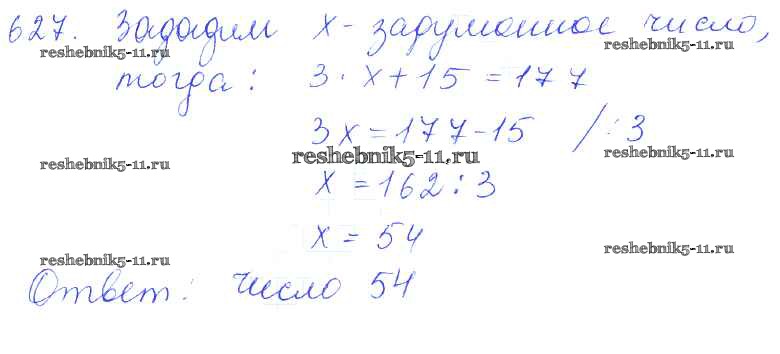 627. Зададим x - задуманное число,
reshebnik5-11.ru reshebnik5-11.ru
тогда: 3 · x + 15 = 177
3x = 177 - 15 / : 3
reshebnik5-11.ru reshebnik5-11.ru reshebnik5-11.ru
x = 162 : 3
x = 54
reshebnik5-11.ru reshebnik5-11.ru
Ответ: число 54